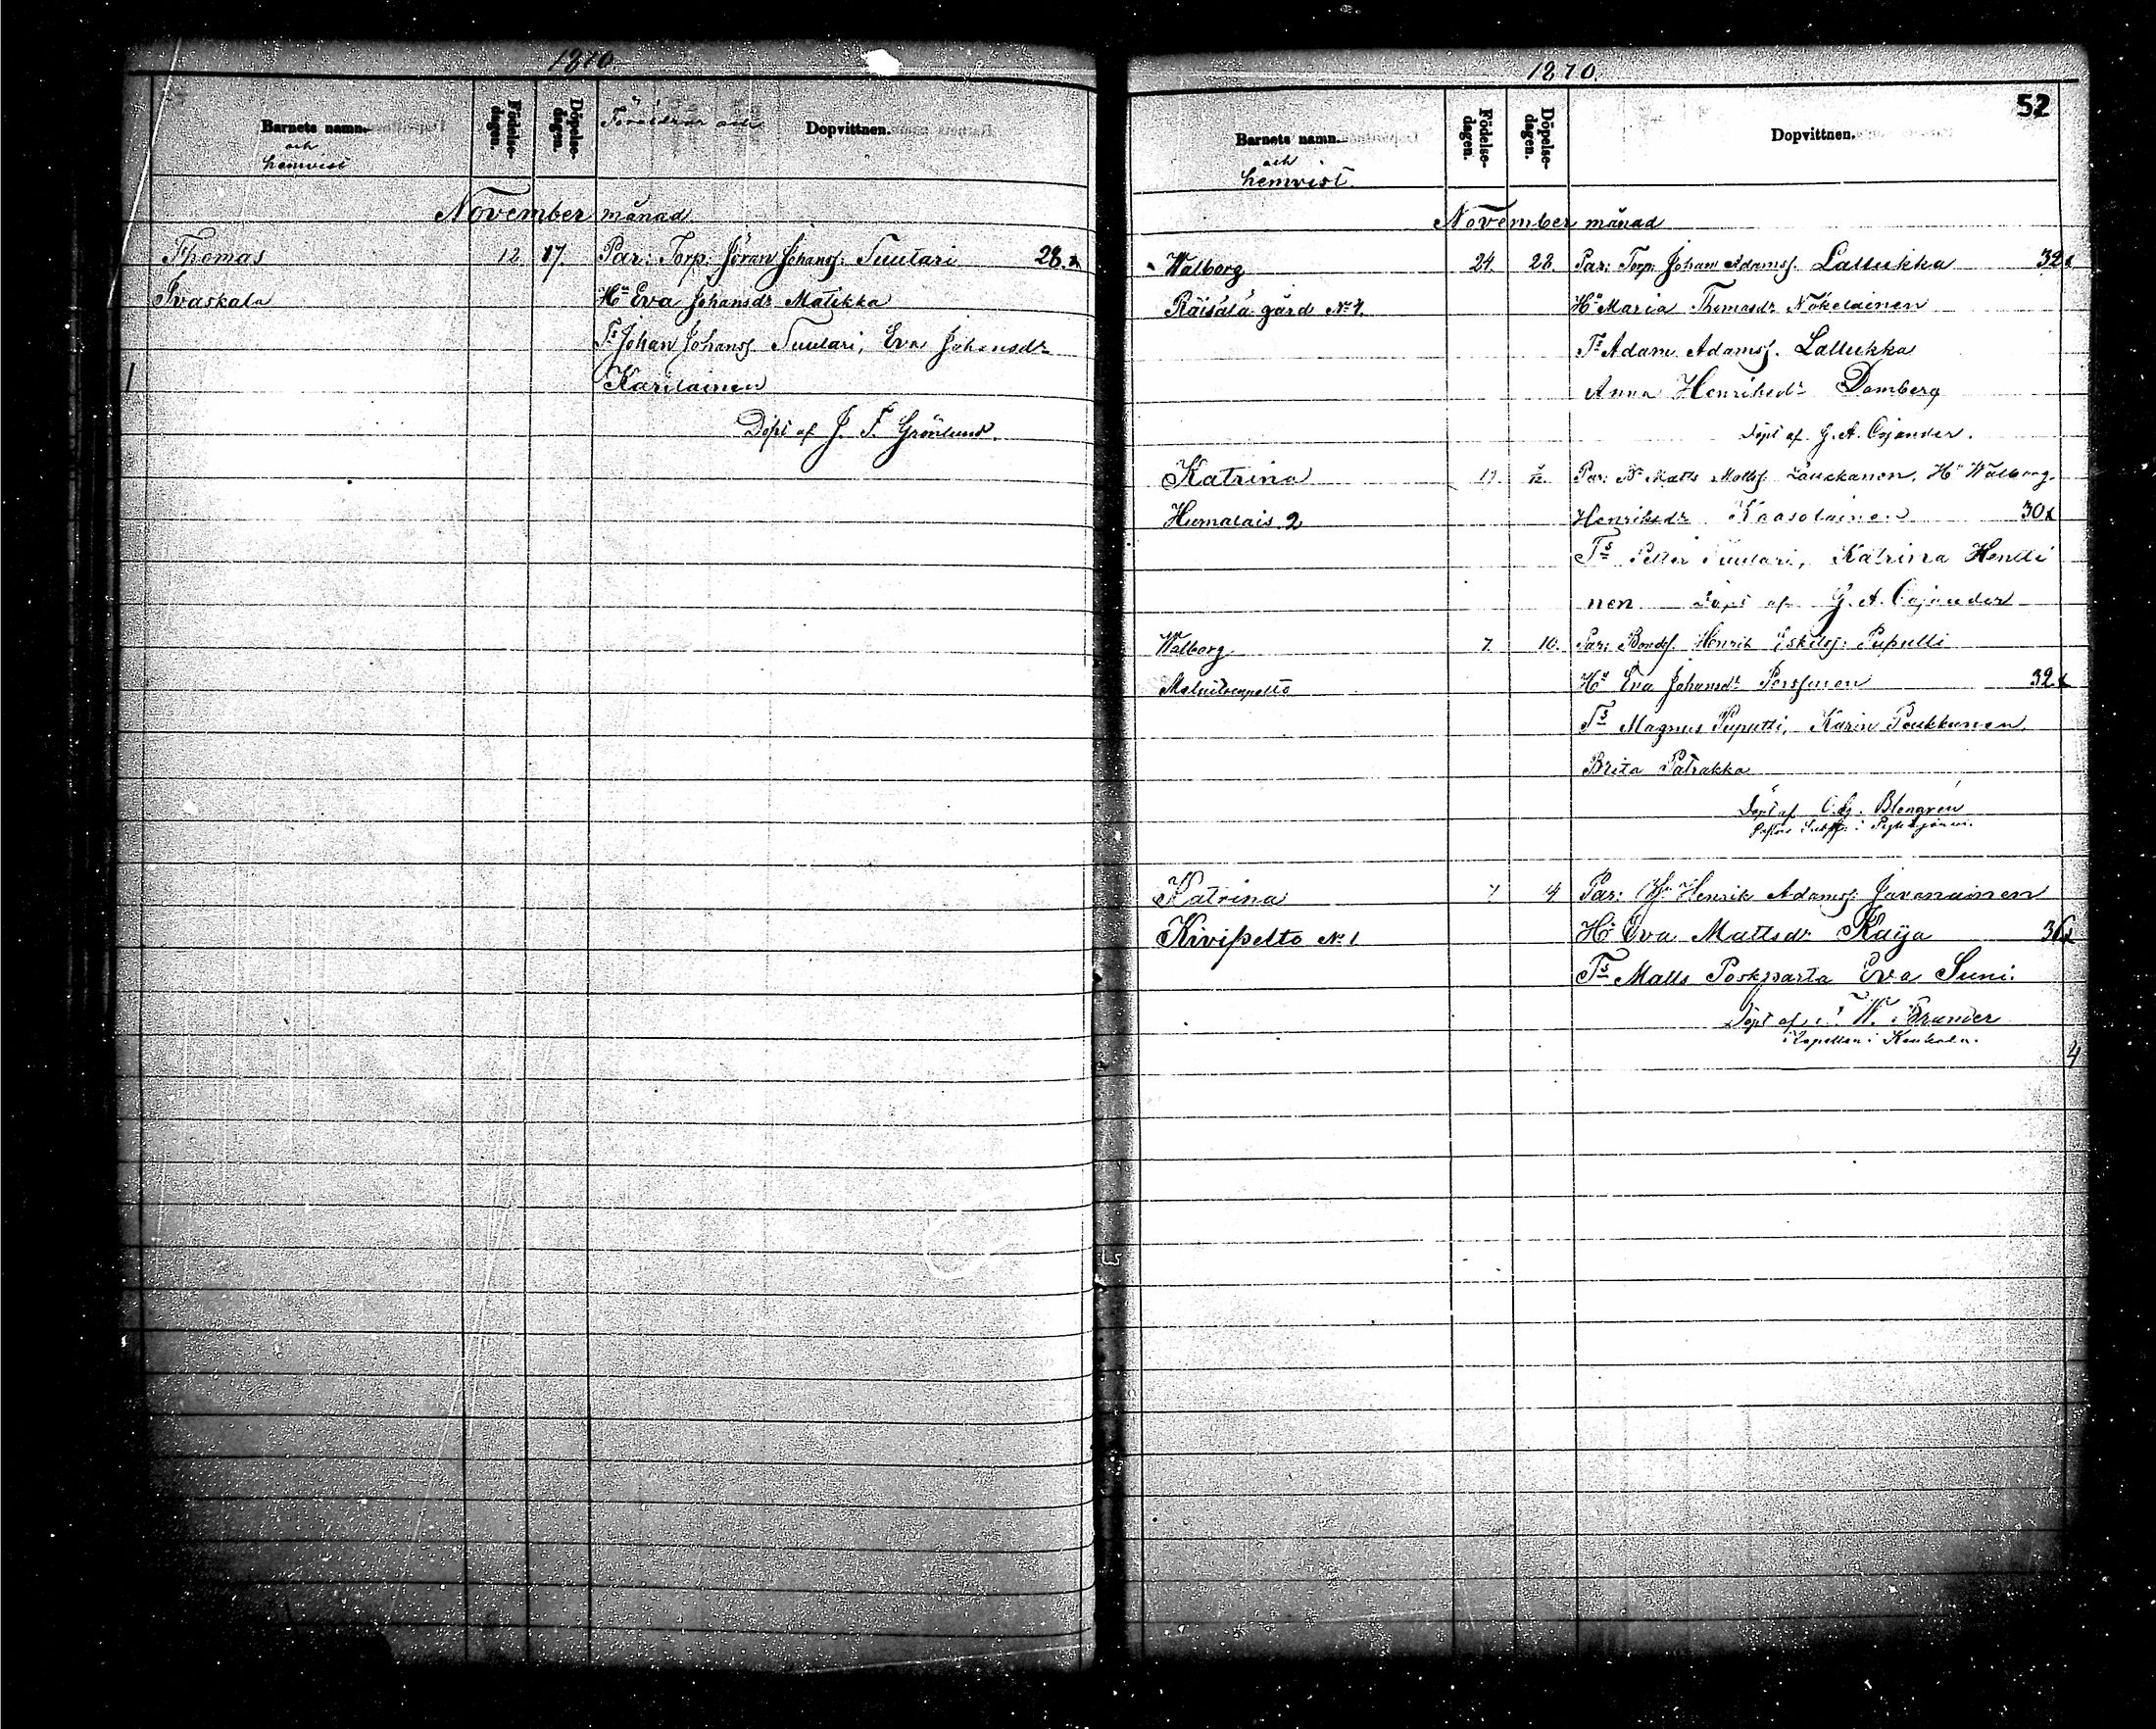 1870.
Barnets namn.
och
hemvist
Födelse-
dagen.
Döpelse-
dagen.
Föräldrar och
Dopvittnen.
November månad
Thomas 12. 17. Par: Torp. Jöran Johansf. Tuutari 28.
Ivaskala Hu Eva Johansdr Matikka
Ts Johan Johansf Tuutari, Eva Johansdr
1 Karilainen
Döpt af J. F. Grönlund.
1870.
52
Barnets namn.
och
hemvist.
Födelse-
dagen.
Döpelse-
dagen.
Dopvittnen.
November månad
Walborg 24. 28. Par: Torp. Johan Adamsf. Lallukka 32
Räisälä gård No 4. Hu Maria Thomasdr Nökelainen
Ts Adam Adamsf. Lallukka
Anna Henriksdr Domberg
Döpt af G. A. Cajander.
Katrina Par: Matts Mattsf. Hu Walborg
Humalais 2 Henriksdr Kaasolainen 30
Ts Petter Tuutari, Katrina Hentti
nen Döpt af G. A. Cajander
Walborg 7. 10. Par: Bondf. Henrik Eskilsf. Puputti
Hu Eva Johansdr 32
Ts Magnus Puputti, Karin Paukkunen
Brita Patrakka
Döpt af Blomgren
Katrina 4 Par: Henrik Adamsf. Javanainen
Kivipelto No 1 Hu Eva Mattsdr Raija
Ts Matts Poskparta Eva Suni.
Döpt af W. Brander
i Kaukola.
4